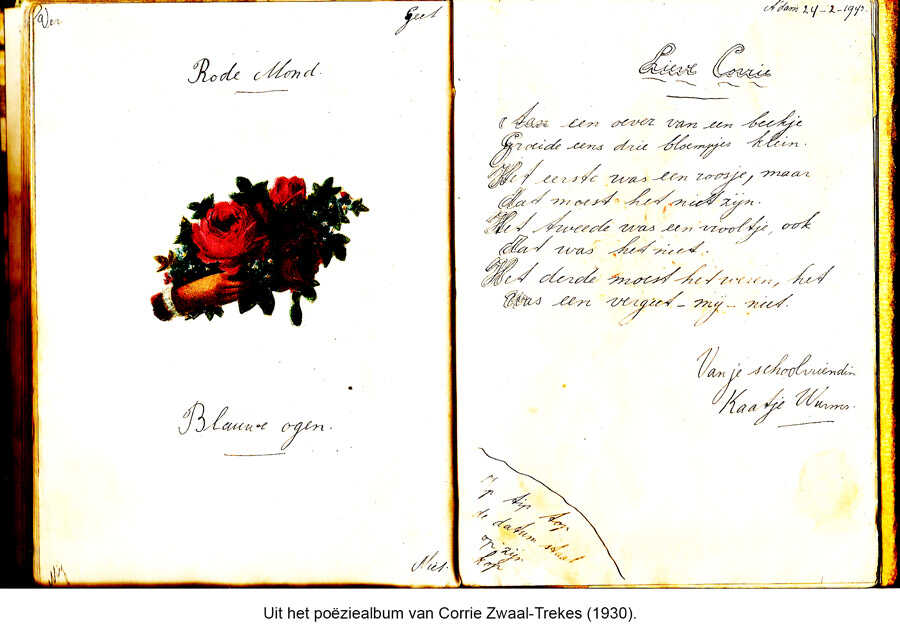 Ver
Geet
Rode Mond.
Blauwe ogen.
Mij
Niet
A'dam 24-2-194
Lieve Corrie
Aan een oever van een beekje
Groeide eens drie bloempjes klein.
Het eerste was een roosje, maar
dat moest het niet zijn.
Het tweede was een viooltje, ook
dat was het niet.
Het derde moest het wezen, het
Was een verget-mij-niet.
Van je schoolvriendin
Kaatje Wurms.
Op tip top
de datum staat
op zijn
kop
Uit het poëziealbum van Corrie Zwaal-Trekes (1930).